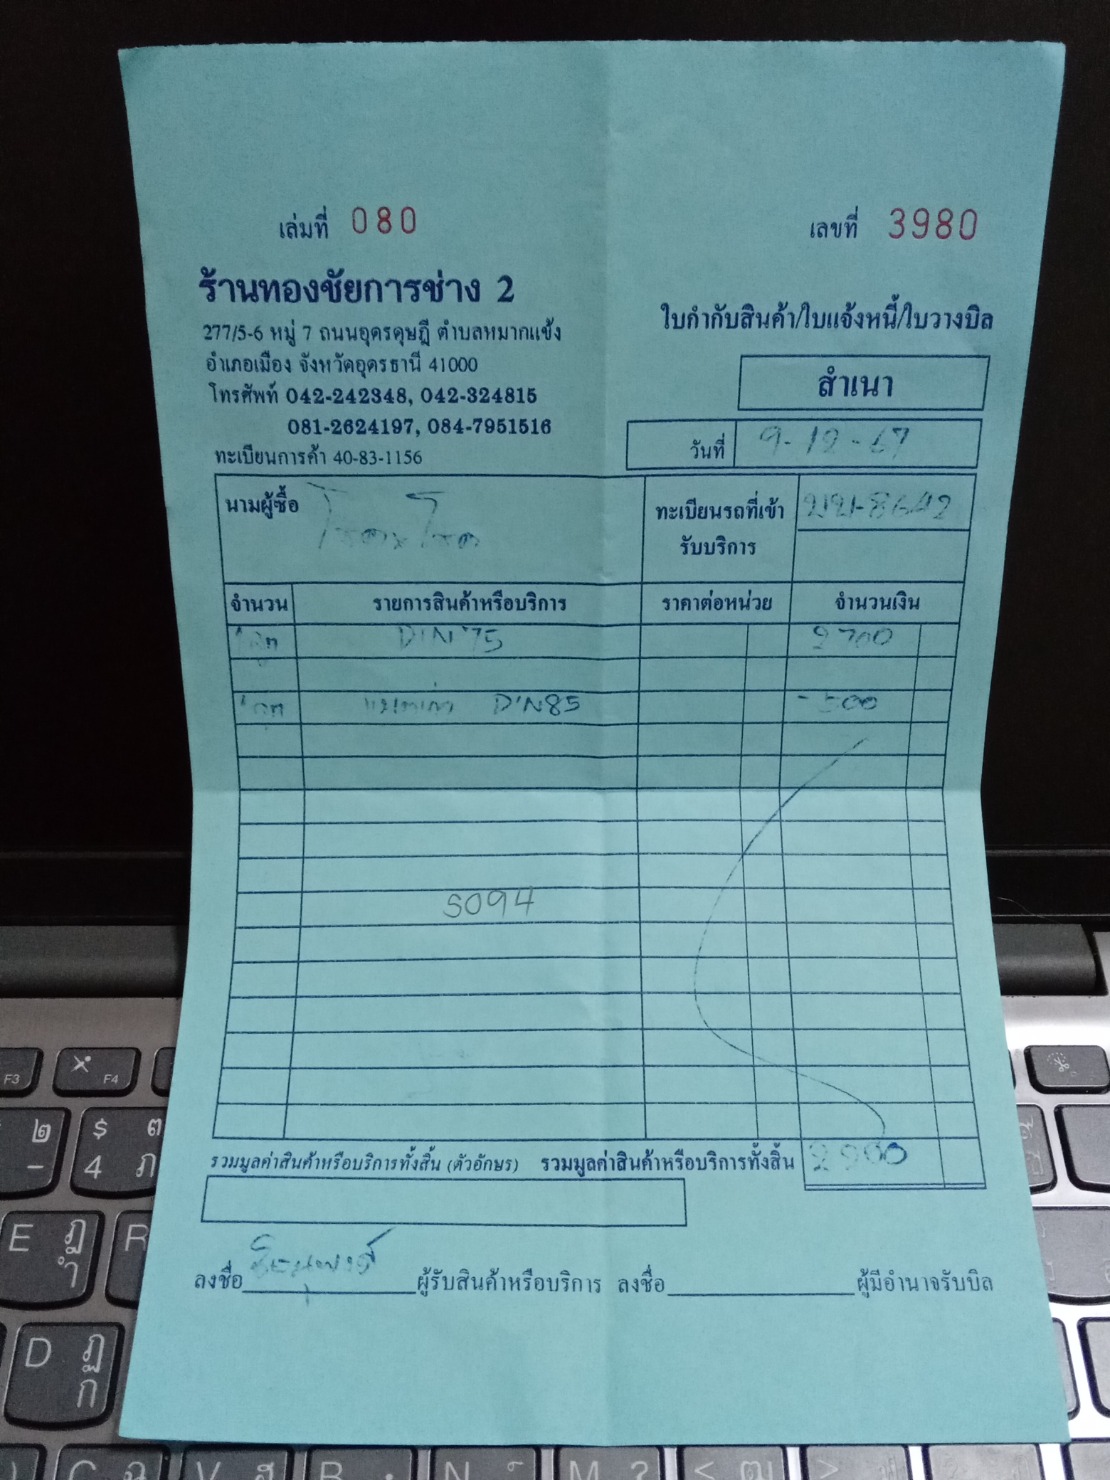 เล่มที่ 080
เลขที่ 3980
ร้านทองชัยการช่าง 2
277/5-6 หมู่ 7 ถนนอุดรดุษฎี ตำบลหมากแข้ง
อำเภอเมือง จังหวัดอุดรธานี 41000
โทรศัพท์ 042-242348, 042-324815
081-2624197, 084-7951516
ทะเบียนการค้า 40-83-1156
ใบกำกับสินค้า/ใบแจ้งหนี้/ใบวางบิล
สำเนา
วันที่ 9-12-67
นามผู้ซื้อ
ทะเบียนรถที่เข้ารับบริการ 8642
จำนวน รายการสินค้าหรือบริการ ราคาต่อหน่วย จำนวนเงิน
1 ลูก DIN 75 2700
1 ลูก แบตเก่า DIN85 -500
S094
รวมมูลค่าสินค้าหรือบริการทั้งสิ้น (ตัวอักษร) รวมมูลค่าสินค้าหรือบริการทั้งสิ้น 2200
ลงชื่อ ผู้รับสินค้าหรือบริการ ลงชื่อ ผู้มีอำนาจรับบิล
F3
F4
๒
-
$
4
ต
ภ
E
ฎ
ำ
R
D
ฏ
ก
C
ฉ
V
ฮ
N
M
?
<
ฒ
>